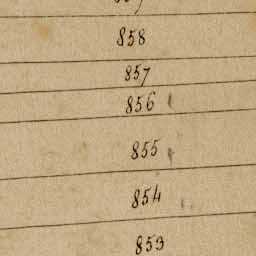 858
857
856
855
854
853